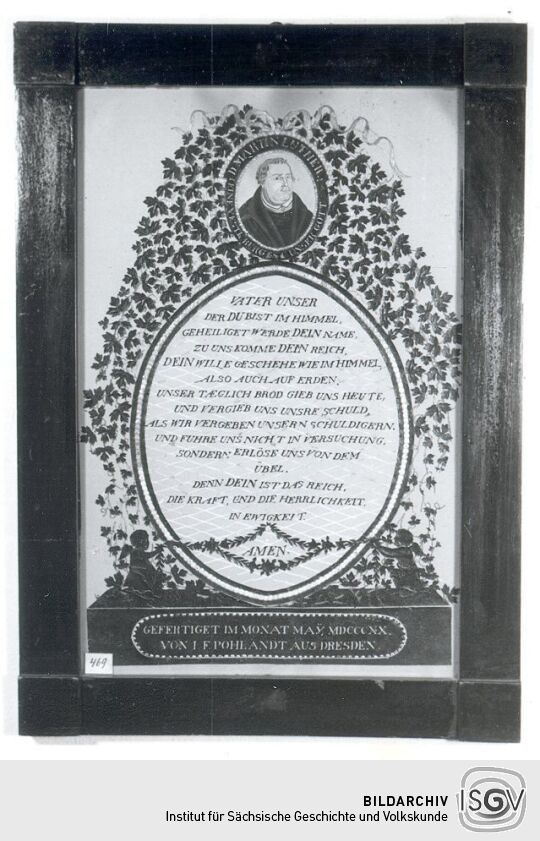 D. MARTIN LUTHER
VATER UNSER
DER DU BIST IM HIMMEL,
GEHEILIGET WERDE DEIN NAME,
ZU UNS KOMME DEIN REICH,
DEIN WILLE GESCHEHE WIE IM HIMMEL,
ALSO AUCH AUF ERDEN,
UNSER TÆGLICH BROD GIEB UNS HEUTE,
UND VERGIEB UNS UNSRE SCHULD,
ALS WIR VERGEBEN UNSERN SCHULDIGERN,
UND FUHRE UNS NICHT IN VERSUCHUNG,
SONDERN ERLÖSE UNS VON DEM
ÜBEL.
DENN DEIN IST DAS REICH,
DIE KRAFT, UND DIE HERRLICHKEIT,
IN EWIGKEIT.
AMEN.
GEFERTIGET IM MONAT MAŸ, MDCCCXX.
VON I. F. POHLANDT AUS DRESDEN
469
BILDARCHIV
Institut für Sächsische Geschichte und Volkskunde
ISGV